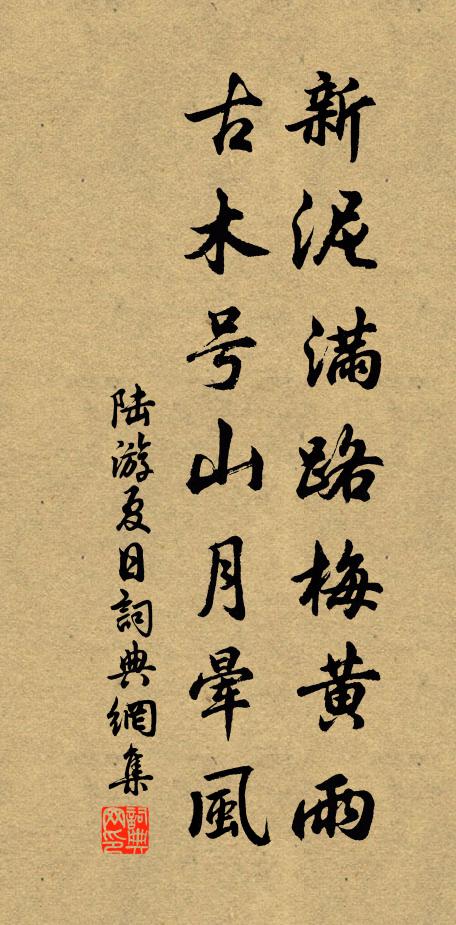 新泥满路梅黄雨
古木号山月暈風
陆游夏日詞典網集
詞典网印